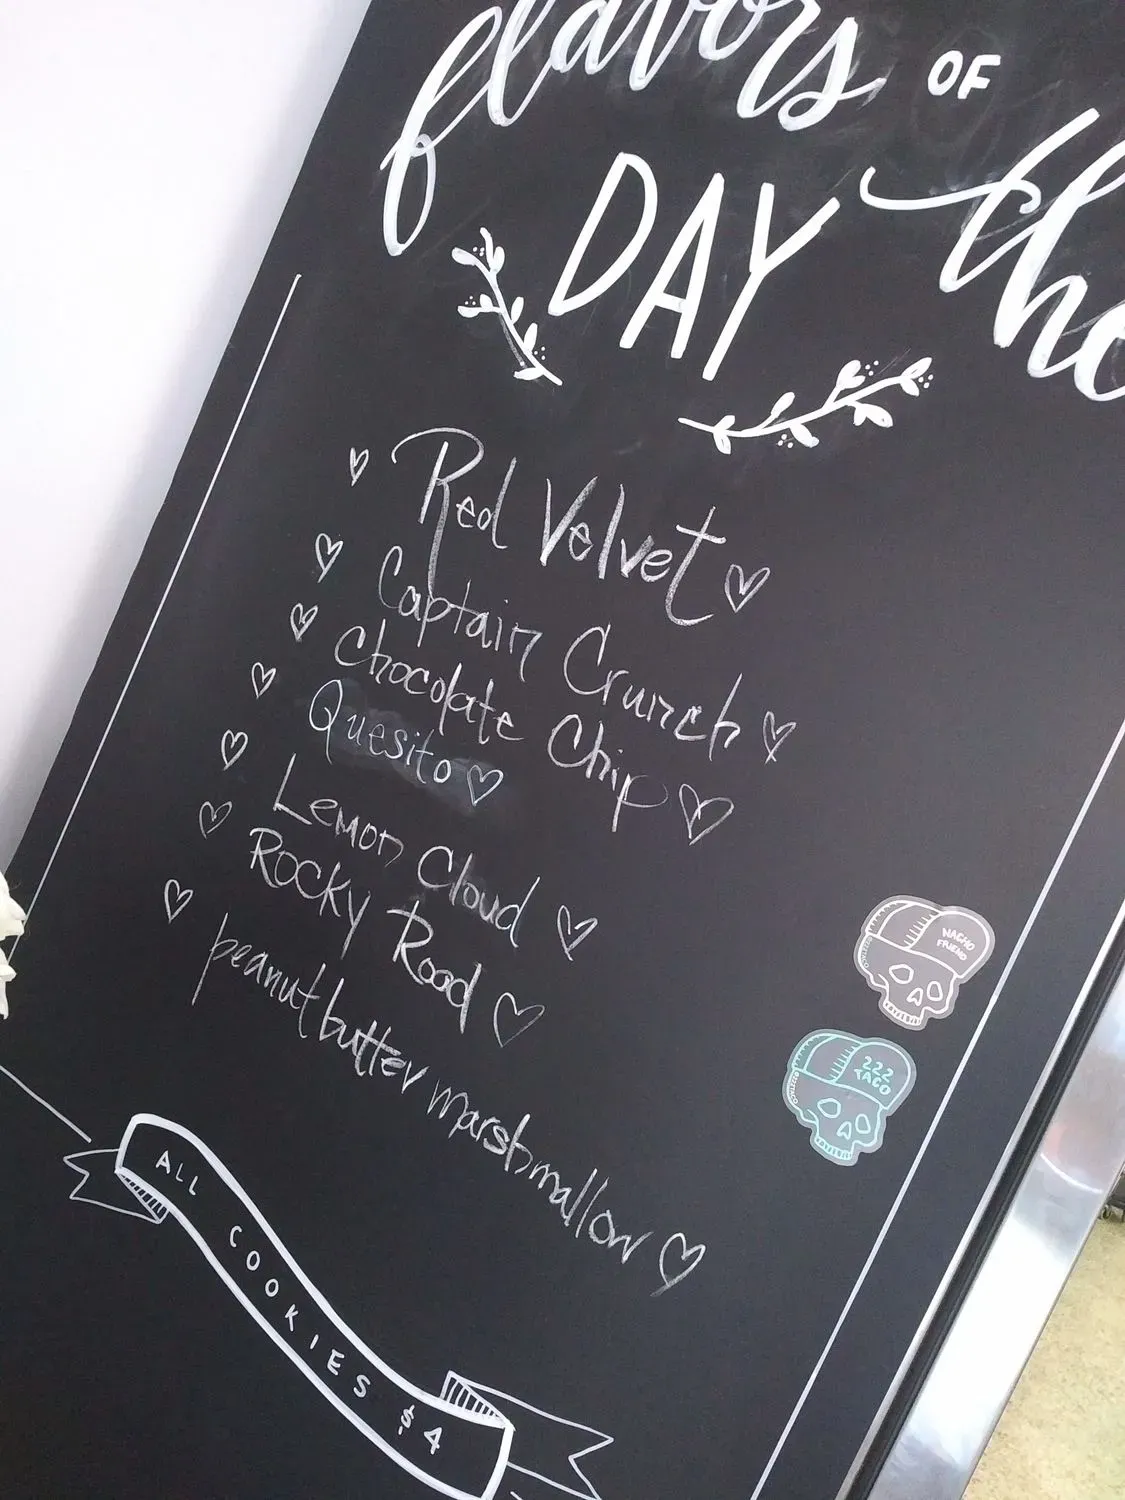 flavors OF the
DAY
Red Velvet
Captain Crunch
Chocolate Chip
Quesito
Lemon Cloud
ROCKY Road
peanut butter marshmallow
NACHO
FRIEND
222
TACO
222TACO
ALL COOKIES $4